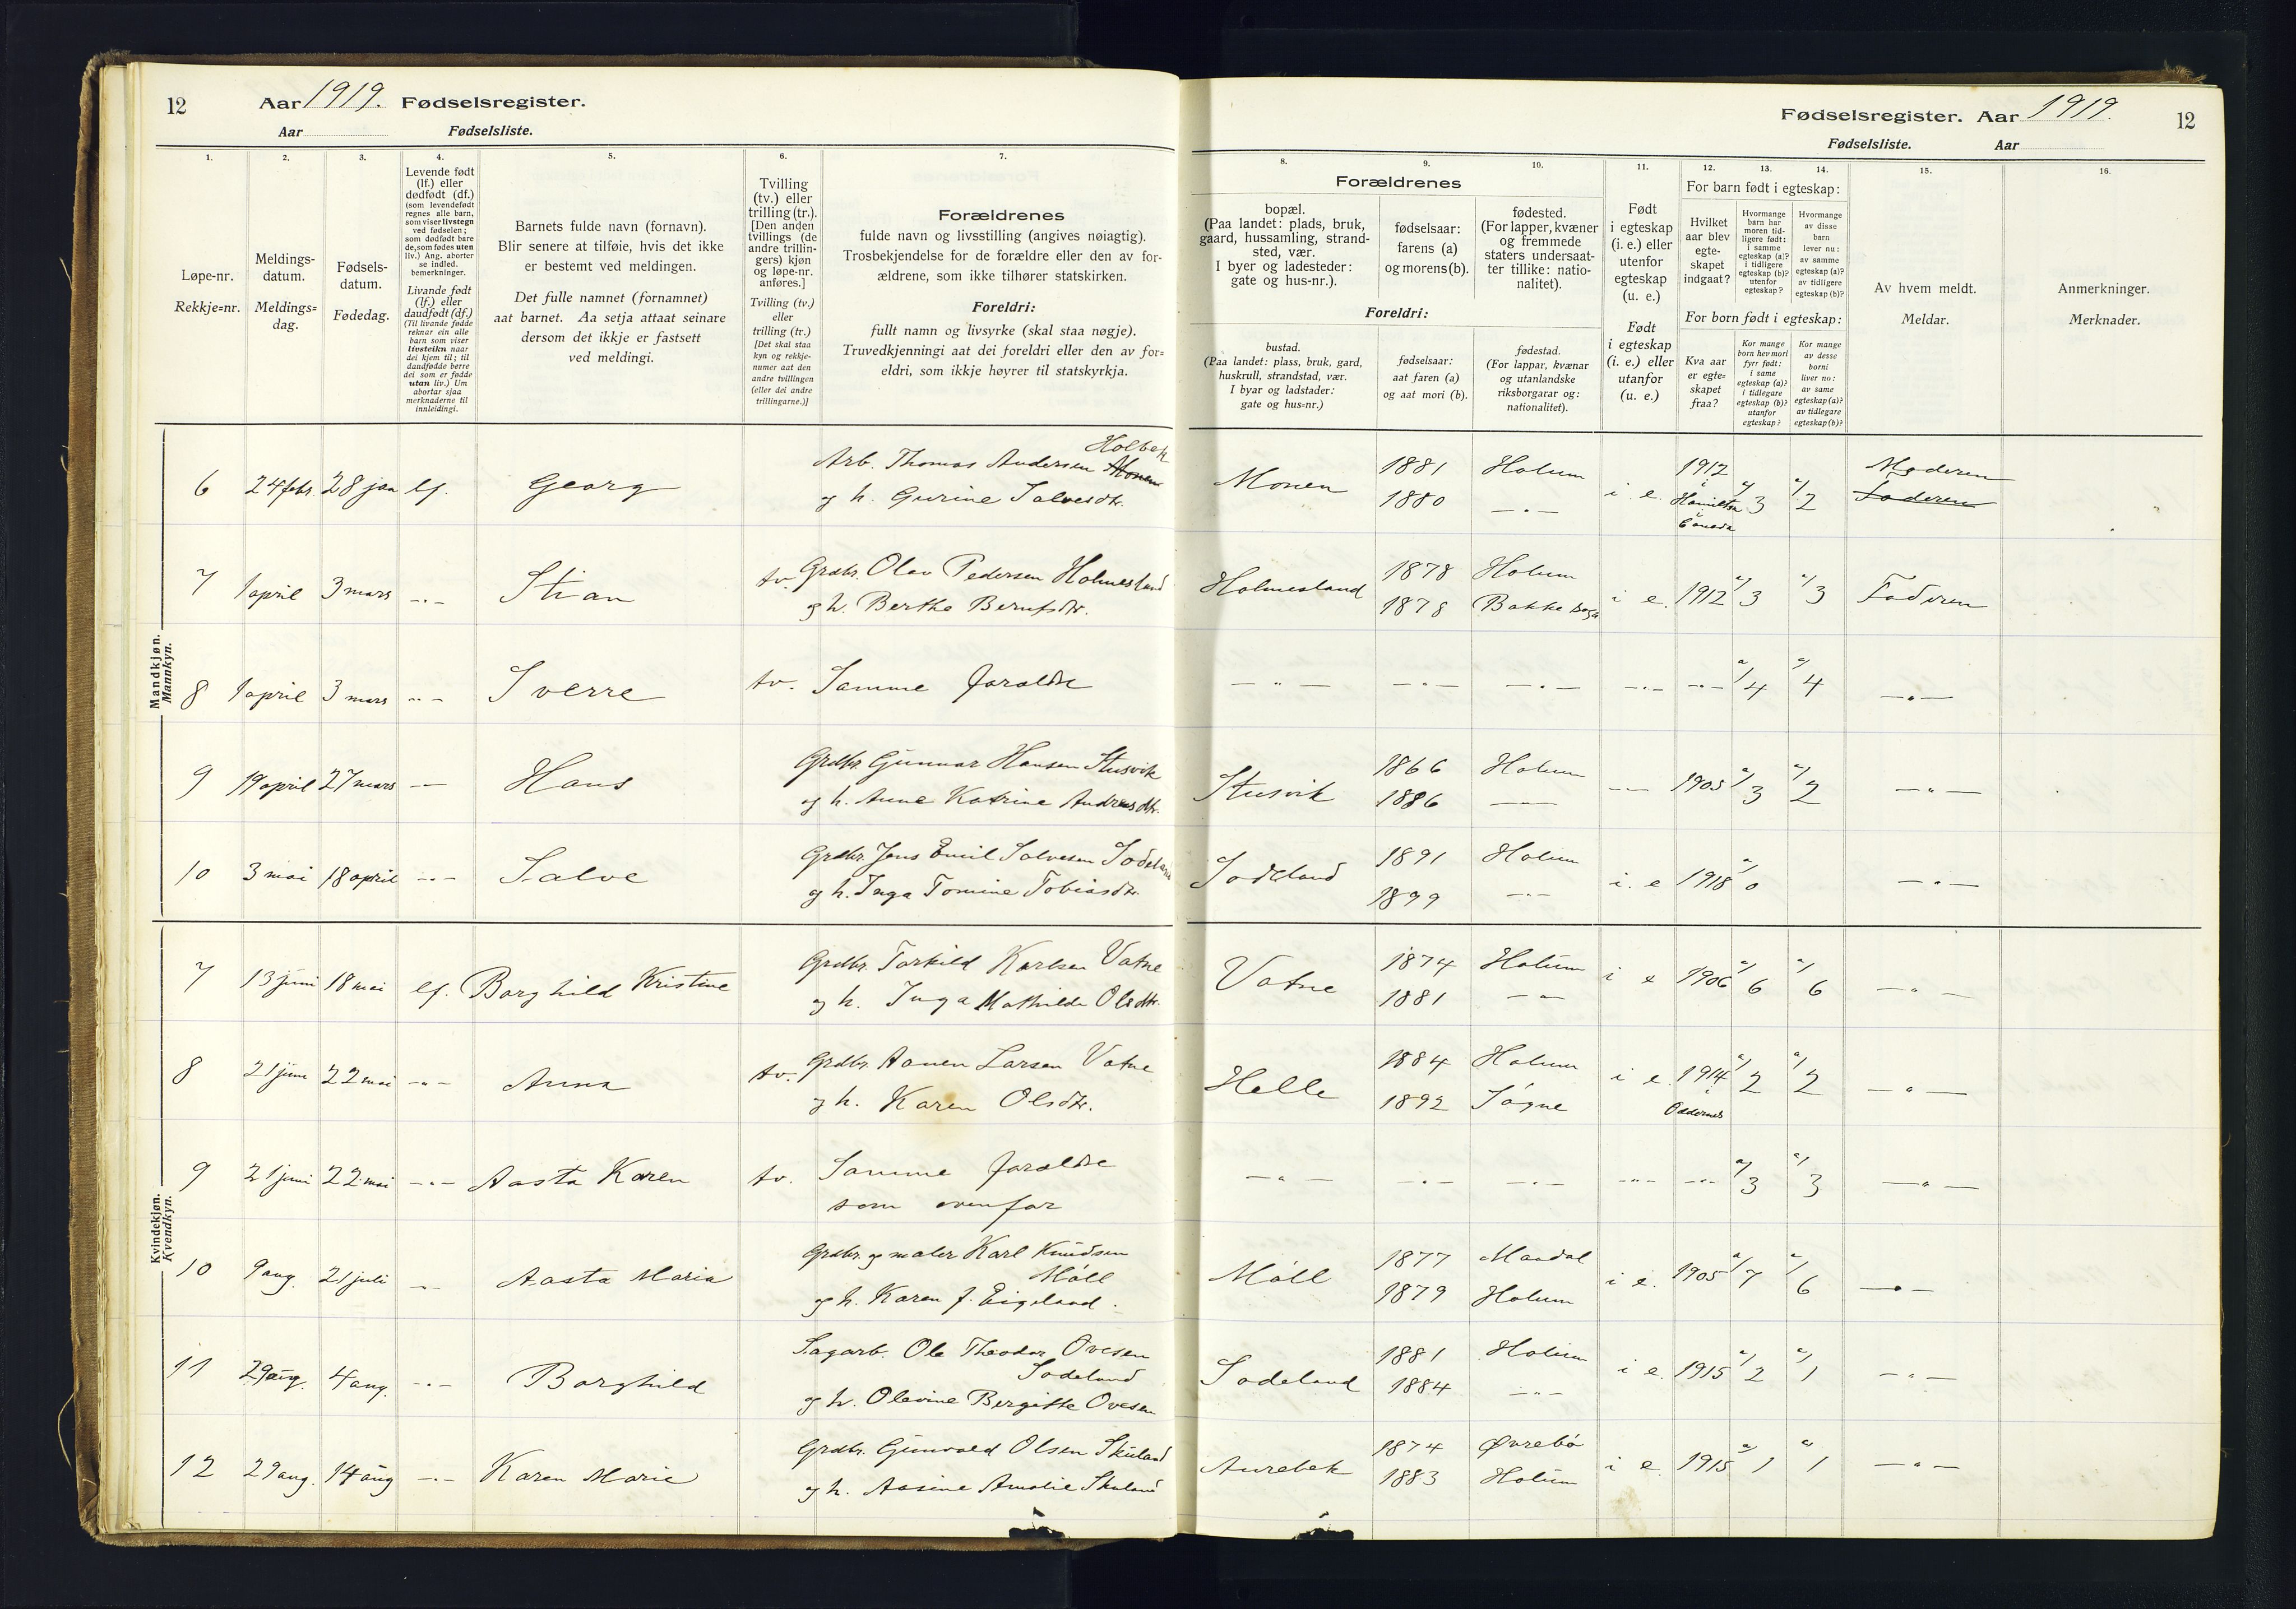 12 Aar 1919. Fødselsregister.
Aar Fødselsliste.
Fødselsregister. Aar 1919. 12
Fødselsliste. Aar
1. 2. 3. 4. 5. 6. 7.
Løpe-nr.
Rekkje=nr.
Meldings-
datum.
Meldings=
dag.
Fødsels-
datum.
Fødedag.
Levende født
(lf.) eller
dødfødt (df.)
(som levendefødt
regnes alle barn,
som viser livstegn
ved fødselen;
som dødfødt bare
de, som fødes uten
liv.) Ang. aborter
se indled.
bemerkninger.
Livande født
(lf.) eller
daudfødt (df.)
(Til livande fødde
reknar ein alle
barn som viser
livsteikn naar
dei kjem til; til
daudfødde berre
dei som er fødde
utan liv.) Um
abortar sjaa
merknaderne til
innleidingi.
Barnets fulde navn (fornavn).
Blir senere at tilføie, hvis det ikke
er bestemt ved meldingen.
Det fulle namnet (fornamnet)
aat barnet. Aa setja attaat seinare
dersom det ikkje er fastsett
ved meldingi.
Tvilling
(tv.) eller
trilling (tr.).
[Den anden
tvillings (de
andre trillin-
gers) kjøn
og løpe-nr.
anføres.]
Tvilling (tv.)
eller
trilling (tr.)
[Det skal staa
kyn og rekkje-
numer aat den
andre tvillingen
(eller dei andre
trillingarne.)]
Forældrenes
fulde navn og livsstilling (angives nøiagtig).
Trosbekjendelse for de forældre eller den av for-
ældrene, som ikke tilhører statskirken.
Foreldri:
fullt namn og livsyrke (skal staa nøgje).
Truvedkjenningi aat dei foreldri eller den av for=
eldri, som ikkje høyrer til statskyrkja.
8. 9. 10. 11. 12. 13. 14. 15. 16.
Forældrenes
bopæl.
(Paa landet: plads, bruk,
gaard, hussamling, strand-
sted, vær.
I byer og ladesteder:
gate og hus-nr.).
fødselsaar:
farens (a)
og morens (b).
fødested.
(For lapper, kvæner
og fremmede
staters undersaat-
ter tillike: natio-
nalitet).
Foreldri:
bustad.
(Paa landet: plass, bruk, gard,
huskrull, strandstad, vær.
I byar og ladstader:
gate og hus=nr.)
fødselsaar:
aat faren (a)
og aat mori (b).
fødestad.
(For lappar, kvænar
og utanlandske
riksborgarar og:
nationalitet).
Født
i egteskap
(i. e.) eller
utenfor
egteskap
(u. e.)
Født
i egteskap
(i. e.) eller
utanfor
(u. e.)
For barn født i egteskap:
Hvilket
aar blev
egte-
skapet
indgaat?
Hvormange
barn har
moren tid-
ligere født:
i samme
egteskap (a)?
i tidligere
egteskap (b)?
utenfor
egteskap?
Hvormange
av disse
barn
lever nu:
av samme
egteskap (a)?
av tidligere
egteskap (b)?
For born født i egteskap:
Kva aar
er egte=
skapet
fraa?
Kor mange
born hev mori
fyrr født:
i same
egteskap (a)?
i tidlegare
egteskap (b)?
utanfor
egteskap?
Kor mange
av desse
borni
liver no:
av same
egteskap (a)?
av tidlegare
egteskap (b)?
Av hvem meldt.
Meldar.
Anmerkninger.
Merknader.
Mandkjøn.
Mannkyn.
6 24 febr. 28 jan lf. Georg Arb. Thomas Andersen Monen Holbek
og h. Gurine Salvesdtr.
Monen 1881 1880 Holum —"— i. e. 1912 i Hamilton Canada a/3 a/2 Moderen Faderen
7 1 april 3 mars —"— Stian tv. Grdbr. Olav Pedersen Holmesland
og h. Berthe Berntsdtr.
Holmesland 1878 1878 Holum Bakke sogn i e. 1912 a/3 a/3 Faderen
8 1 april 3 mars —"— Sverre tv. Samme foraeldre
—"— —"— —"— —"— —"— a/4 a/4 —"—
9 19 april 27 mars —"— Hans Grdbr. Gunnar Hansen Stusvik
og h. Anne Katrine Andreasdtr.
Stusvik 1866 1886 Holum —"— —"— 1905 a/3 a/2 —"—
10 3 mai 18 april —"— Salve Grdbr. Jens Emil Salvesen Sodeland
og h. Inga Tomine Tobiasdtr.
Sodeland 1891 1899 Holum —"— i. e 1918 a/0 —"—
Kvindekjøn.
Kvendkyn.
7 13 juni 18 mai lf. Borghild Kristine Grdbr. Torkild Karlsen Vatne
og h. Inga Mathilde Olsdtr.
Vatne 1874 1881 Holum —"— i e 1906 a/6 a/6 —"—
8 21 juni 22 mai —"— Anna tv. Grdbr. Aanen Larsen Vatne
og h. Karen Olsdtr.
Helle 1884 1892 Holum Søgne i e. 1914 i Oddernes a/2 a/2 —"—
9 21 juni 22 mai —"— Aasta Karen tv. Samme foraeldre
som ovenfor
—"— —"— —"— —"— —"— a/3 a/3 —"—
10 9 aug. 21 juli —"— Aasta Maria Grdbr. og maler Karl Knudsen
Møll
og h. Karen f. Eigeland.
Møll 1877 1879 Mandal Holum i e. 1905 a/7 a/6 —"—
11 29 aug. 4 aug. —"— Borghild Sagarb. Ole Theodor Ovesen
Sodeland
og h. Olevine Bergitte Ovesen
Sodeland 1881 1884 Holum —"— i e. 1915 a/2 a/1 —"—
12 29 aug. 14 aug —"— Karen Marie Grdbr. Gunvald Olsen Skuland
og h. Aasine Amalie Skuland
Aurebek 1874 1883 Øvrebø Holum i e. 1915 a/1 a/1 —"—